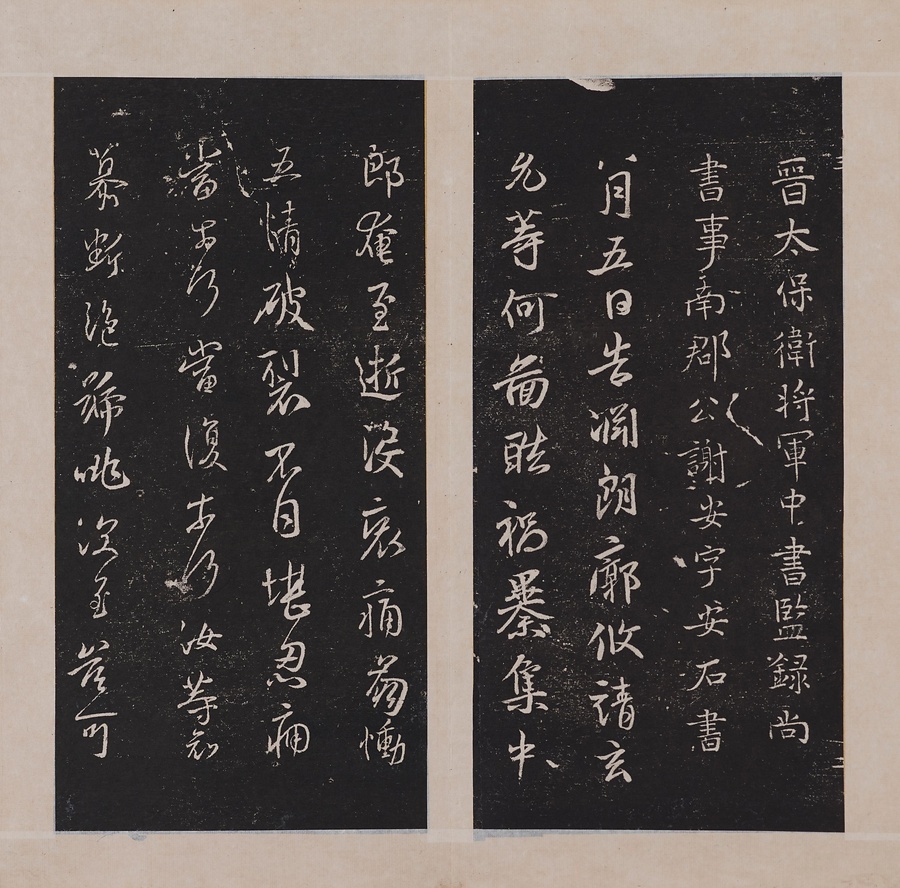 晉太保衛將軍中書監錄尚
書事南郡公謝安字安石書
八月五日告淵朗廓攸靖玄
允等何圖酷禍暴集中
郎奄至逝沒哀痛崩慟
五情破裂不自堪忍痛
當奈何當復奈何汝等哀
慕斷絕號咷深至豈可